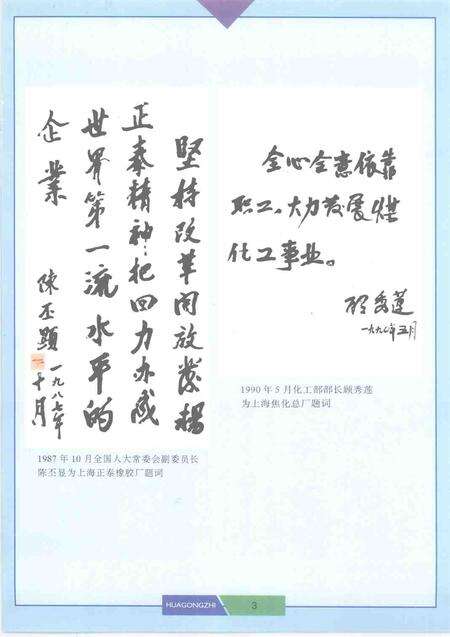 坚持改革开放发扬
正泰精神:把回力办成
世界第一流水平的
企業
陳丕顯
一九八七年
十月
1987 年 10 月全国人大常委会副委员长
陈丕显为上海正泰橡胶厂题词
全心全意依靠
职工。大力发展煤
化工事业。
顾秀莲
一九九〇年五月
1990 年 5 月化工部部长顾秀莲
为上海焦化总厂题词
HUAGONGZHI
3